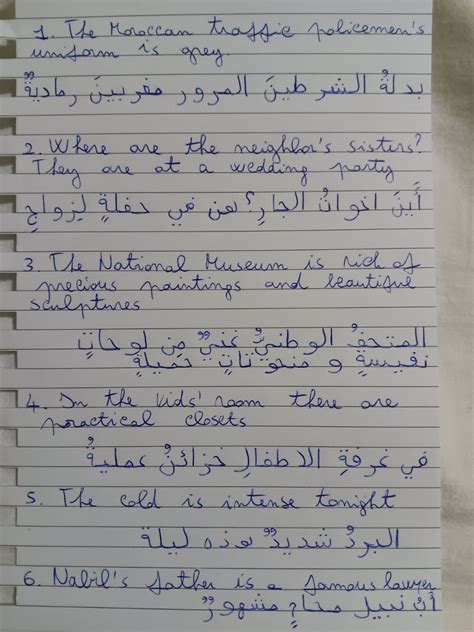 1. The Moroccan traffic policemen's
uniform is grey.
بدلةُ الشرطينَ المرور مغربينَ رماديةٌ
2. Where are the neighbor's sisters?
They are at a wedding party
أَينَ اخواتُ الجارِ؟ هن في حفلةٍ لِزواجٍ
3. The National Museum is rich of
precious paintings and beautiful
sculptures
المتحفُ الوطنيُّ غنيٌّ مِن لوحاتٍ
نفيسةٍ و منحوتاتٍ جميلةٍ
4. In the kids' room there are
practical closets
في غرفةِ الاطفالِ خزائنُ عمليةٌ
5. The cold is intense tonight
البردُ شديدٌ هذه ليلة
6. Nabil's father is a famous lawyer
أبُ نبيل محامٍ مشهورٌ